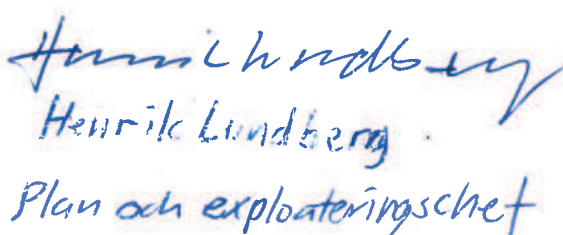 Henrik Lundberg
Henrik Lundberg
Plan och exploateringschef